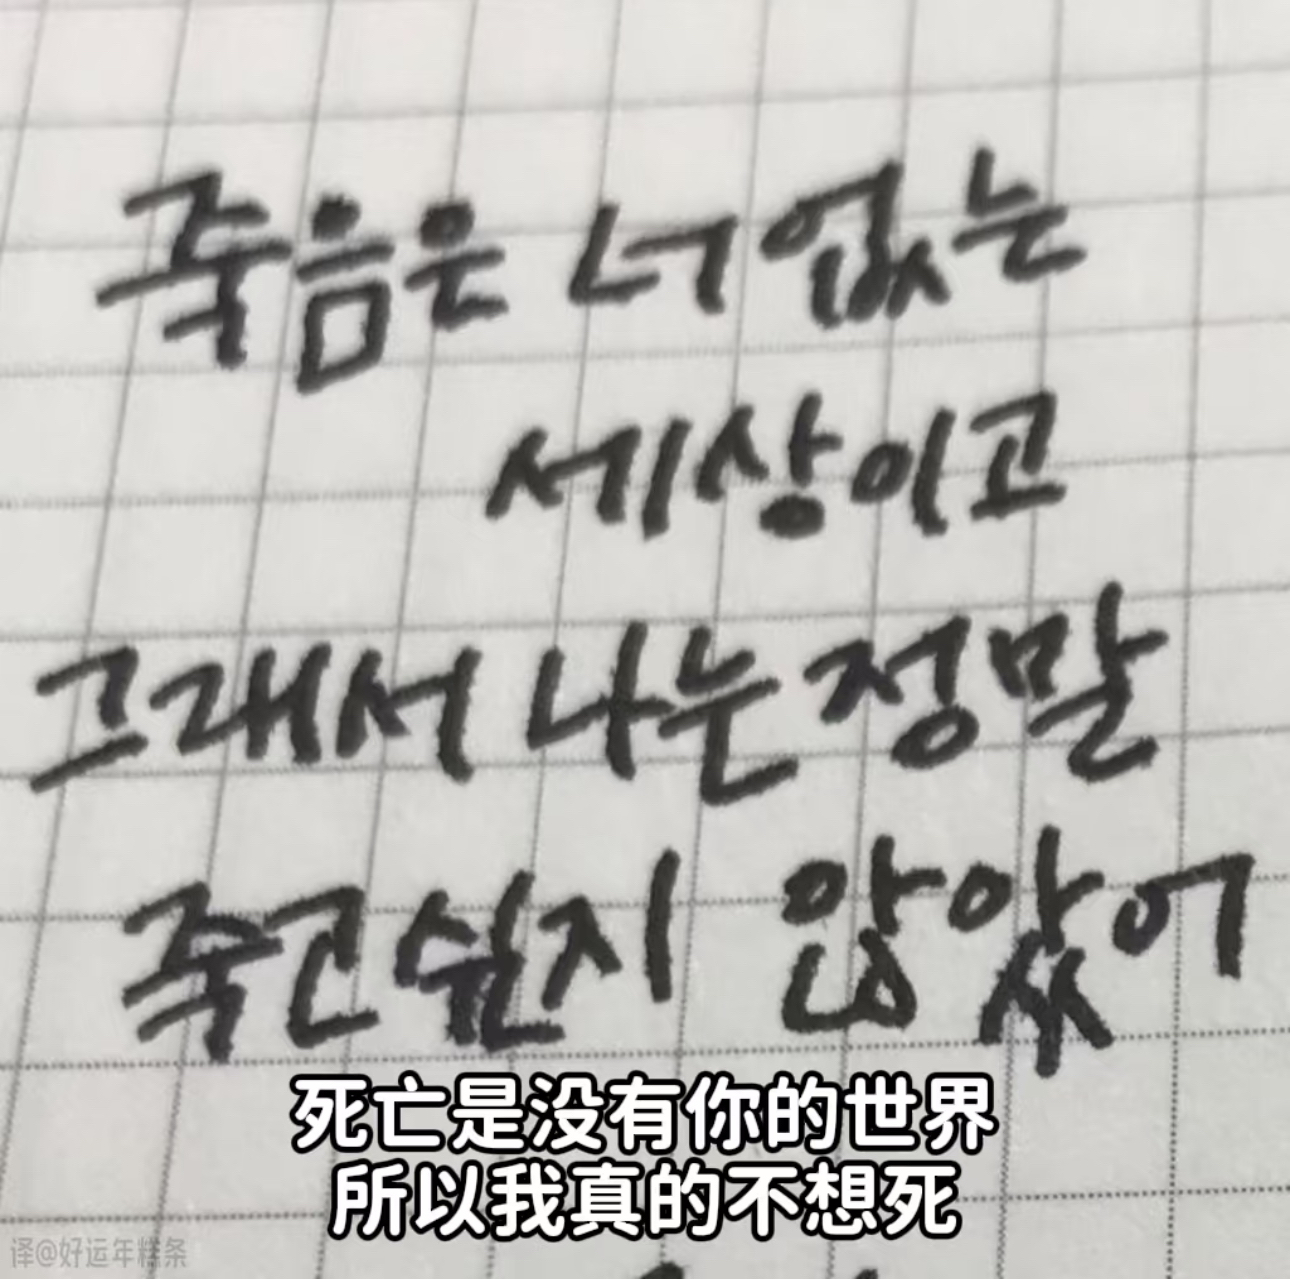 죽음은 너 없는
세상이고
그래서 나는 정말
죽고 싶지 않았어
死亡是没有你的世界
所以我真的不想死
译@好运年糕条